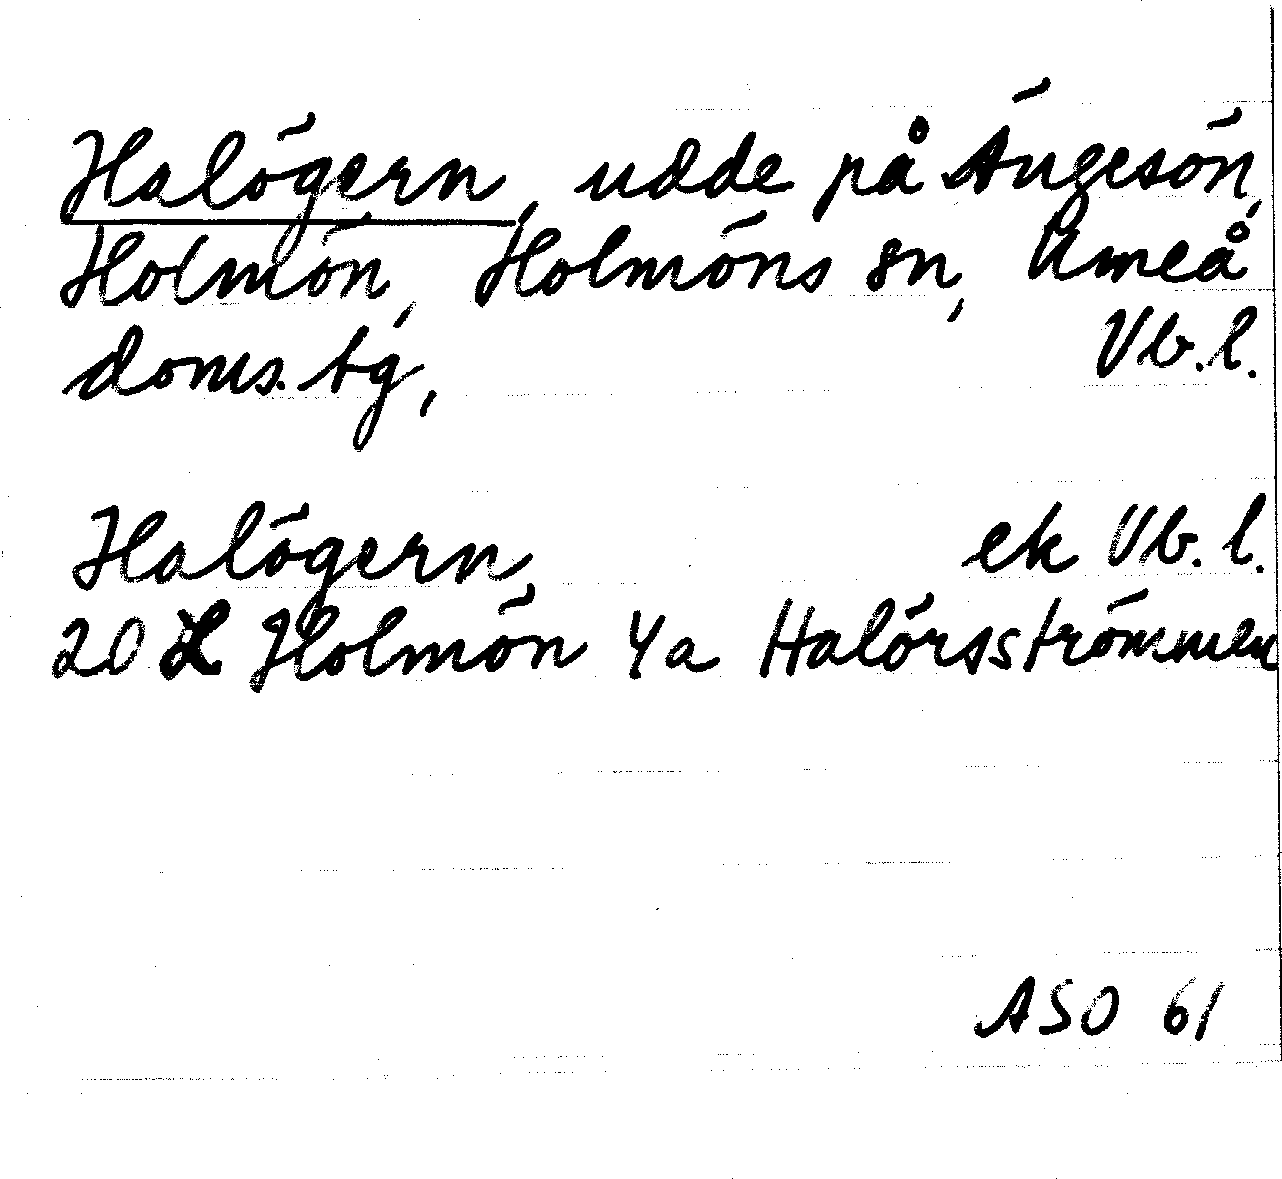 Halögern, udde på Ängesön,
Holmön, Holmöns sn, Umeå
doms.tg, Vb.l.
Halögern, ek Vb.l.
20 L Holmön 4a Halörsströmmen
ASO 61